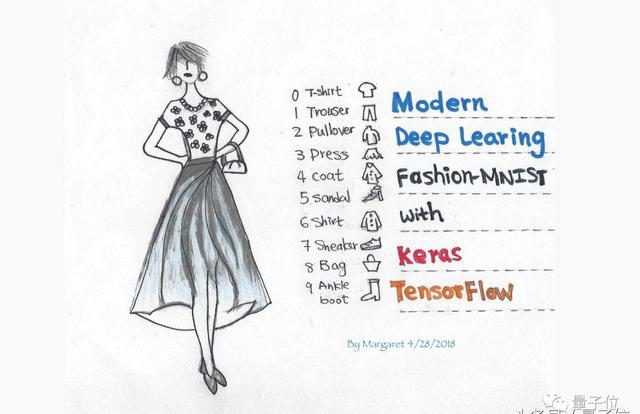 0 T-shirt
1 Trouser
2 Pullover
3 Dress
4 coat
5 sandal
6 Shirt
7 Sneaker
8 Bag
9 Ankle
boot
Modern
Deep Learing
Fashion-MNIST
with
Keras
TensorFlow
By Margaret 4/28/2018
量子位